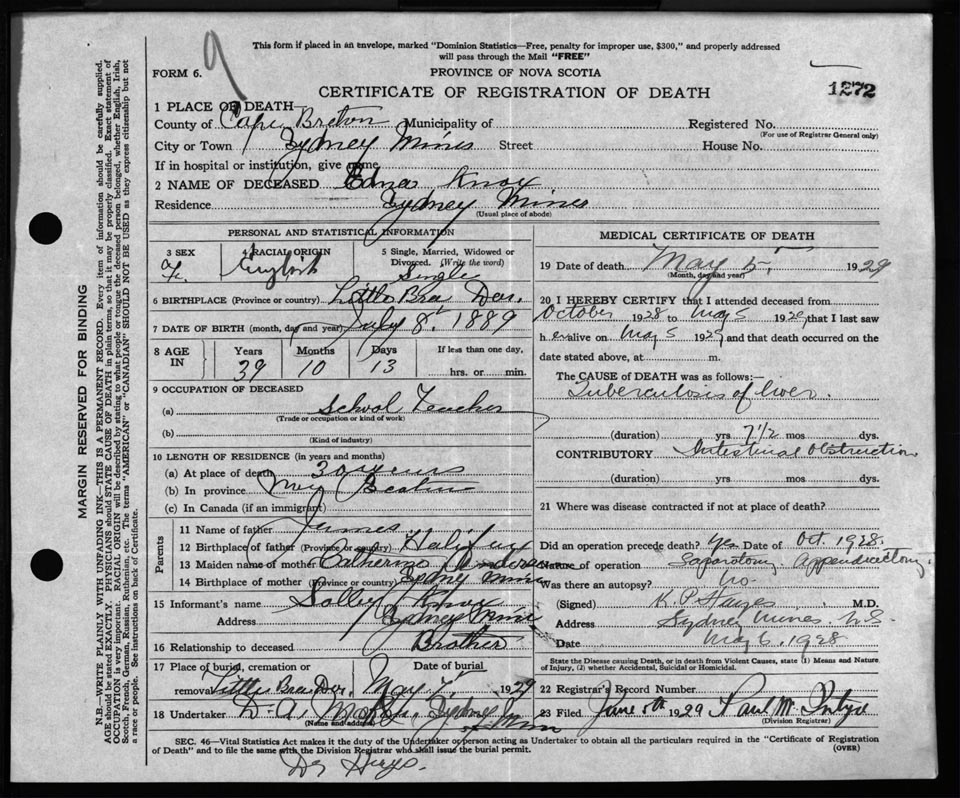 9
This form if placed in an envelope, marked "Dominion Statistics—Free, penalty for improper use, $300," and properly addressed
will pass through the Mail "FREE"
FORM 6.
PROVINCE OF NOVA SCOTIA
CERTIFICATE OF REGISTRATION OF DEATH
1272
1 PLACE OF DEATH
County of Cape Breton Municipality of Registered No.
(For use of Registrar General only)
City or Town Sydney Mines Street House No.
If in hospital or institution, give name
2 NAME OF DECEASED Edna Knox
Residence Sydney Mines
(Usual place of abode)
PERSONAL AND STATISTICAL INFORMATION
3 SEX F. 4 RACIAL ORIGIN English 5 Single, Married, Widowed or Divorced. (Write the word) Single
6 BIRTHPLACE (Province or country) Little Bras Dor.
7 DATE OF BIRTH (month, day and year) July 8, 1889
8 AGE IN Years 39 Months 10 Days 13 If less than one day, hrs. or min.
9 OCCUPATION OF DECEASED
(a) School Teacher
(Trade or occupation or kind of work)
(b)
(Kind of industry)
10 LENGTH OF RESIDENCE (in years and months)
(a) At place of death 30 years
(b) In province
(c) In Canada (if an immigrant)
Parents
11 Name of father James
12 Birthplace of father (Province or country) Halifax
13 Maiden name of mother Catherine
14 Birthplace of mother (Province or country) Sydney Mines
15 Informant's name Knox
Address Sydney Mines
16 Relationship to deceased Brother
17 Place of burial, cremation or removal Little Bras Dor, Date of burial May 7 1929
18 Undertaker D. A. Sydney Mines
(Name and address)
MEDICAL CERTIFICATE OF DEATH
19 Date of death May 5, 1929
(Month, day and year)
20 I HEREBY CERTIFY that I attended deceased from
October 1928 to May 5 1929, that I last saw
her alive on May 5 1929, and that death occurred on the
date stated above, at m.
The CAUSE of DEATH was as follows:—
Tuberculosis of liver.
(duration) yrs 7½ mos dys.
CONTRIBUTORY Intestinal Obstruction
(duration) yrs mos dys.
21 Where was disease contracted if not at place of death?
Did an operation precede death? Yes Date of Oct. 1928.
Name of operation Laparotomy Appendectomy.
Was there an autopsy? No.
(Signed) K. P. Hayes M.D.
Address Sydney Mines N.S.
Date May 6, 1928
State the Disease causing Death, or in death from Violent Causes, state (1) Means and Nature
of Injury, (2) whether Accidental, Suicidal or Homicidal.
22 Registrar's Record Number
23 Filed June 8th 1929 Paul
(Division Registrar)
SEC. 46—Vital Statistics Act makes it the duty of the Undertaker or person acting as Undertaker to obtain all the particulars required in the "Certificate of Registration
of Death" and to file the same with the Division Registrar who shall issue the burial permit.
(OVER)
Dr Hayes.
MARGIN RESERVED FOR BINDING
N.B.—WRITE PLAINLY WITH UNFADING INK—THIS IS A PERMANENT RECORD. Every item of information should be carefully supplied.
AGE should be stated EXACTLY. PHYSICIANS should STATE CAUSE OF DEATH in plain terms, so that it may be properly classified. Exact statement of
OCCUPATION is very important. RACIAL ORIGIN will be described by stating to what people or tongue the deceased person belonged, whether English, Irish,
Scotch, French, German, Russian, Ruthenian, etc. The terms "AMERICAN" or "CANADIAN" SHOULD NOT BE USED as they express citizenship but not
a race or people. See instructions on back of Certificate.